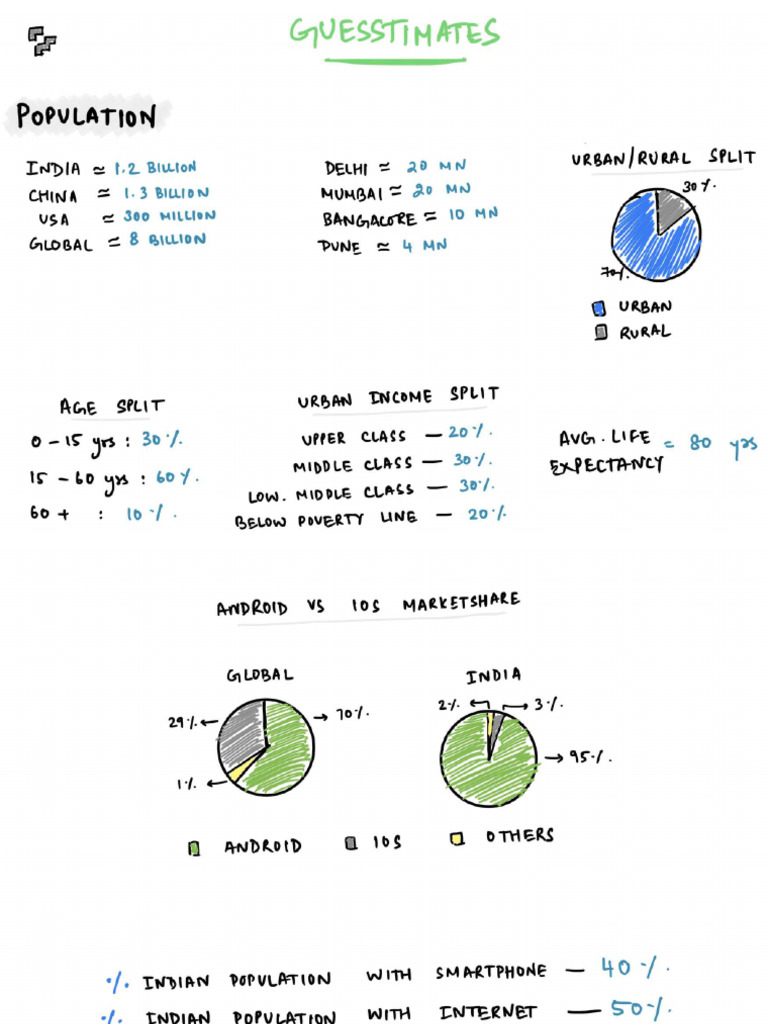 GUESSTIMATES
POPULATION
INDIA ≈ 1.2 BILLION
CHINA ≈ 1.3 BILLION
USA ≈ 300 MILLION
GLOBAL ≈ 8 BILLION
DELHI ≈ 20 MN
MUMBAI ≈ 20 MN
BANGALORE ≈ 10 MN
PUNE ≈ 4 MN
URBAN/RURAL SPLIT
30%.
70%.
URBAN
RURAL
AGE SPLIT
0-15 yrs : 30%.
15-60 yrs : 60%.
60+ : 10%.
URBAN INCOME SPLIT
UPPER CLASS — 20%.
MIDDLE CLASS — 30%.
LOW. MIDDLE CLASS — 30%.
BELOW POVERTY LINE — 20%.
AVG. LIFE
EXPECTANCY = 80 yrs
ANDROID VS IOS MARKETSHARE
GLOBAL
29%.
70%.
1%.
INDIA
2%.
3%.
95%.
ANDROID IOS OTHERS
% INDIAN POPULATION WITH SMARTPHONE — 40%.
% INDIAN POPULATION WITH INTERNET — 50%.